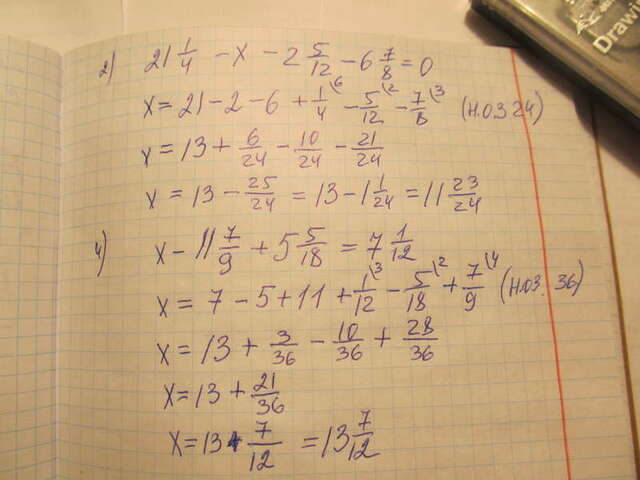 Drawi
2) 21 1/4 - x - 2 5/12 - 6 7/8 = 0
x = 21 - 2 - 6 + 1/4 \6 - 5/12 \2 - 7/8 \3 (н.о.з 24)
x = 13 + 6/24 - 10/24 - 21/24
x = 13 - 25/24 = 13 - 1 1/24 = 11 23/24
4) x - 11 7/9 + 5 5/18 = 7 1/12
x = 7 - 5 + 11 + 1/12 \3 - 5/18 \2 + 7/9 \4 (н.оз. 36)
x = 13 + 3/36 - 10/36 + 28/36
x = 13 + 21/36
x = 13 + 7/12 = 13 7/12